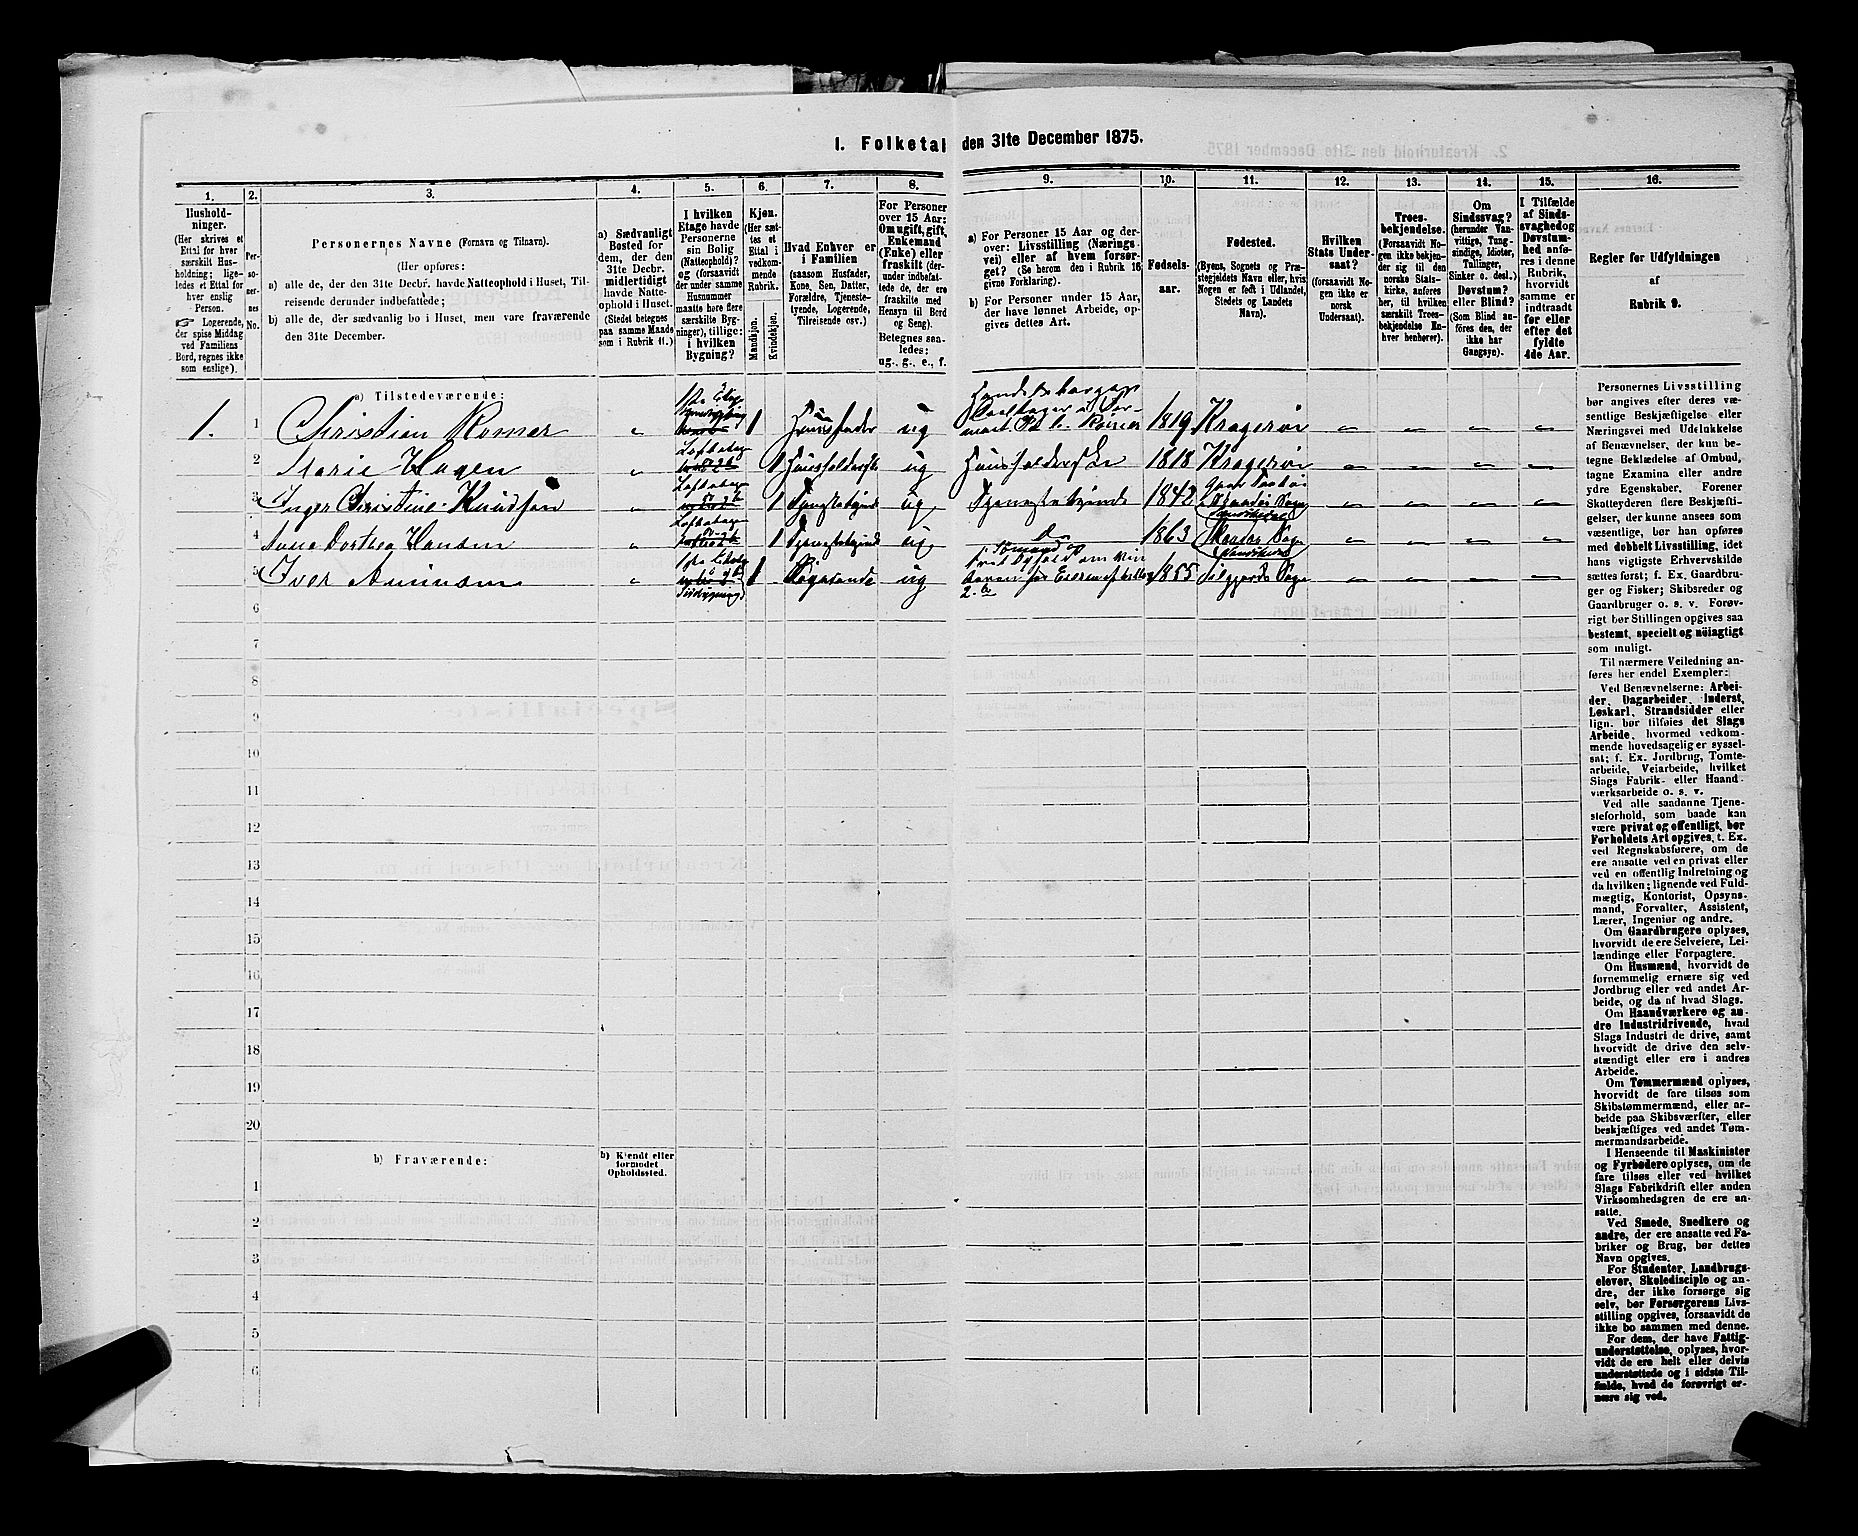 I. Folketal den 31te December 1875.
1.
2.
3.
4.
5.
6.
7.
8.
9.
10.
11.
12.
13.
14.
15.
16.
Husholdninger.
(Her skrives et
Ettal for hver
særskilt Husholdning; ligeledes et Ettal for
hver enslig
Person.
☞ Logerende,
der spise Middag
ved Familiens
Bord, regnes ikke
som enslige).
Personernes No.
Personernes Navne (Fornavn og Tilnavn).
(Her opføres:
a) alle de, der den 31te Decbr. havde Natteophold i Huset, Tilreisende derunder indbefattede;
b) alle de, der sædvanlig bo i Huset, men vare fraværende
den 31te December.
a) Sædvanligt
Bosted for
dem, der den
31te Decbr.
midlertidigt
havde Natteophold i Huset.
(Stedet betegnes
paa samme Maade
som i Rubrik 11.)
I hvilken
Etage havde
Personerne
sin Bolig
(Natteophold)?
og (forsaavidt
der under samme
Husnummer
maatte høre flere
særskilte Bygninger), tillige:
i hvilken
Bygning?
Kjøn.
(Her sættes et
Ettal i
vedkommende
Rubrik.
Mandkjøn.
Kvindekjøn.
Hvad Enhver er
i Familien
(saasom Husfader,
Kone, Søn, Datter,
Forældre, Tjenestetyende, Logerende,
Tilreisende osv.)
For Personer
over 15 Aar:
Om ugift, gift,
Enkemand
(Enke) eller
fraskilt (derunder indbefattede de, der ere
fraskilte med
Hensyn til Bord
og Seng).
Betegnes saaledes:
ug., g., e., f.
a) For Personer 15 Aar og derover: Livsstilling (Næringsvei) eller af hvem forsørget? (Se herom den i Rubrik 16
givne Forklaring).
b) For Personer under 15 Aar,
der have lønnet Arbeide, opgives dettes Art.
Fødselsaar.
Fødested.
(Byens, Sognets og Præstegjeldets Navn eller, hvis
Nogen er født i Udlandet,
Stedets og Landets
Navn).
Hvilken
Stats Undersaat?
(forsaavidt Nogen ikke er
norsk
Undersaat).
Troesbekjendelse.
(Forsaavidt Nogen ikke bekjender sig til den
norske Statskirke, anføres
her, til hvilken
særskilt Troesbekjendelse Enhver henhører).
Om
Sindssvag?
(herunder Vanvittige, Tungsindige, Idioter,
Tullinger,
Sinker o. desl.)
Døvstum?
eller Blind?
(Som Blind anføres den, der
ikke har
Gangsyn).
I Tilfælde
af Sindssvaghed og
Døvstumhed anføres i denne
Rubrik,
hvorvidt
samme er
indtraadt
før eller
efter det
fyldte
4de Aar.
Regler for Udfyldningen
af
Rubrik 9.
a) Tilstedeværende:
1. 1 Christian Romer 1 Huusfader ug 1819 Kragerøe
2 Marie Hagen 1 ug 1818 Kragerøe
3 Inger Christine Knudsen 1 Tjenestetyende ug Tjenestetyende 1842
4 Anna Dorthea Hansen 1 Tjenestetyende ug 1863
5 Iver Amunsen 1 Logerende ug 1855 Sogn
6
7
8
9
10
11
12
13
14
15
16
17
18
19
20
b) Fraværende:
b) Kjendt eller
formodet
Opholdssted.
1
2
3
4
5
6
Personernes Livsstilling
bør angives efter deres væsentlige Beskjæftigelse eller
Næringsvei med Udelukkelse
af Benævnelser, der kun betegne Beklædelse af Ombud,
tagne Examina eller andre
ydre Egenskaber. Forener
Skatteyderen flere Beskjæftigelser, der kunne ansees som
væsentlige, bør han opføres
med dobbelt Livsstilling, idet
hans vigtigste Erhvervskilde
sættes først; f. Ex. Gaardbruger og Fisker; Skibsreder og
Gaardbruger o. s. v. Forøvrigt bør Stillingen opgives saa
bestemt, specielt og nöiagtigt
som muligt.
Til nærmere Veiledning anføres her endel Exempler:
Ved Benævnelserne: Arbeider, Dagarbeider, Inderst,
Løskarl, Strandsidder eller
lign. bør tilføies det Slags
Arbeide, hvormed vedkommende hovedsagelig er sysselsat; f. Ex. Jordbrug, Tomtearbeide, Veiarbeide, hvilket
Slags Fabrik- eller Haandværksarbeide o. s. v.
Ved alle saadanne Tjenesteforhold, som baade kan
være privat og offentligt, bør
Forholdets Art opgives, t. Ex.
ved Regnskabsførere, om de
ere ansatte ved en privat eller
ved en offentlig Indretning og
da hvilken; lignende ved Fuldmægtig, Kontorist, Opsynsmand, Forvalter, Assistent,
Lærer, Ingeniør og andre.
Om Gaardbrugere oplyses,
hvorvidt de ere Selveiere, Leilændinge eller Forpagtere.
Om Husmænd, hvorvidt de
fornemmelig ernære sig ved
Jordbrug eller ved andet Arbeide, og da af hvad Slags.
Om Haandværkere og andre Industridrivende, hvad
Slags Industri de drive, samt
hvorvidt de drive den selvstændigt eller ere i andres
Arbeide.
Om Tømmermænd oplyses,
hvorvidt de fare tilsøs som
Skibstømmermænd, eller arbeide paa Skibsværfter, eller
beskjæftiges ved andet Tømmermandsarbeide.
I Henseende til Maskinister
og Fyrbødere oplyses, om de
fare tilsøs eller ved hvilket
Slags Fabrikdrift eller anden
Virksomhedsgren de ere ansatte.
Ved Smede, Snedkere og
andre, der ere ansatte ved Fabriker og Brug, bør dettes
Navn opgives.
For Studenter, Landbrugselever, Skoledisciple og andre, der ikke forsørge sig
selv, bør Forsørgerens Livsstilling opgives, forsaavidt de
ikke bo sammen med denne.
For dem, der have Fattigunderstøttelse, oplyses, hvorvidt de ere helt eller delvis
understøttede og i sidste Tilfælde, hvad de forøvrigt ernære sig ved.